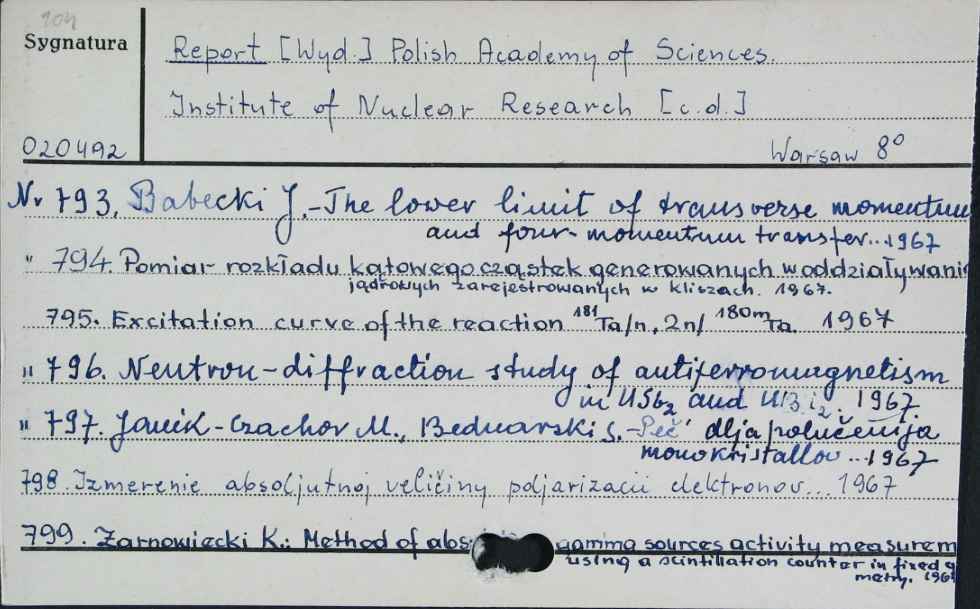 204
Sygnatura
Report [Wyd.] Polish Academy of Sciences.
Institute of Nuclear Research [c.d.]
020492
Warsaw 8°
Nr 793. Babecki J. - The lower limit of transverse momentum
and four-momentum transfer... 1967
" 794. Pomiar rozkładu kątowego cząstek generowanych w oddziaływani
jądrowych zarejestrowanych w kliszach. 1967.
795. Excitation curve of the reaction ¹⁸¹Ta/n, 2n/ ¹⁸⁰ᵐTa 1967
" 796. Neutron-diffraction study of antiferromagnetism
in USb₂ and UBi₂. 1967.
" 797. Janik-Czachor M., Bednarski S. - Peč' dlja polučenija
monokristallov... 1967
798 Izmerenie absoljutnoj veličiny poljarizacii elektronov... 1967
799. Żarnowiecki K.: Method of abs gamma sources activity measurem
using a scintillation counter in fixed g
metry. 196